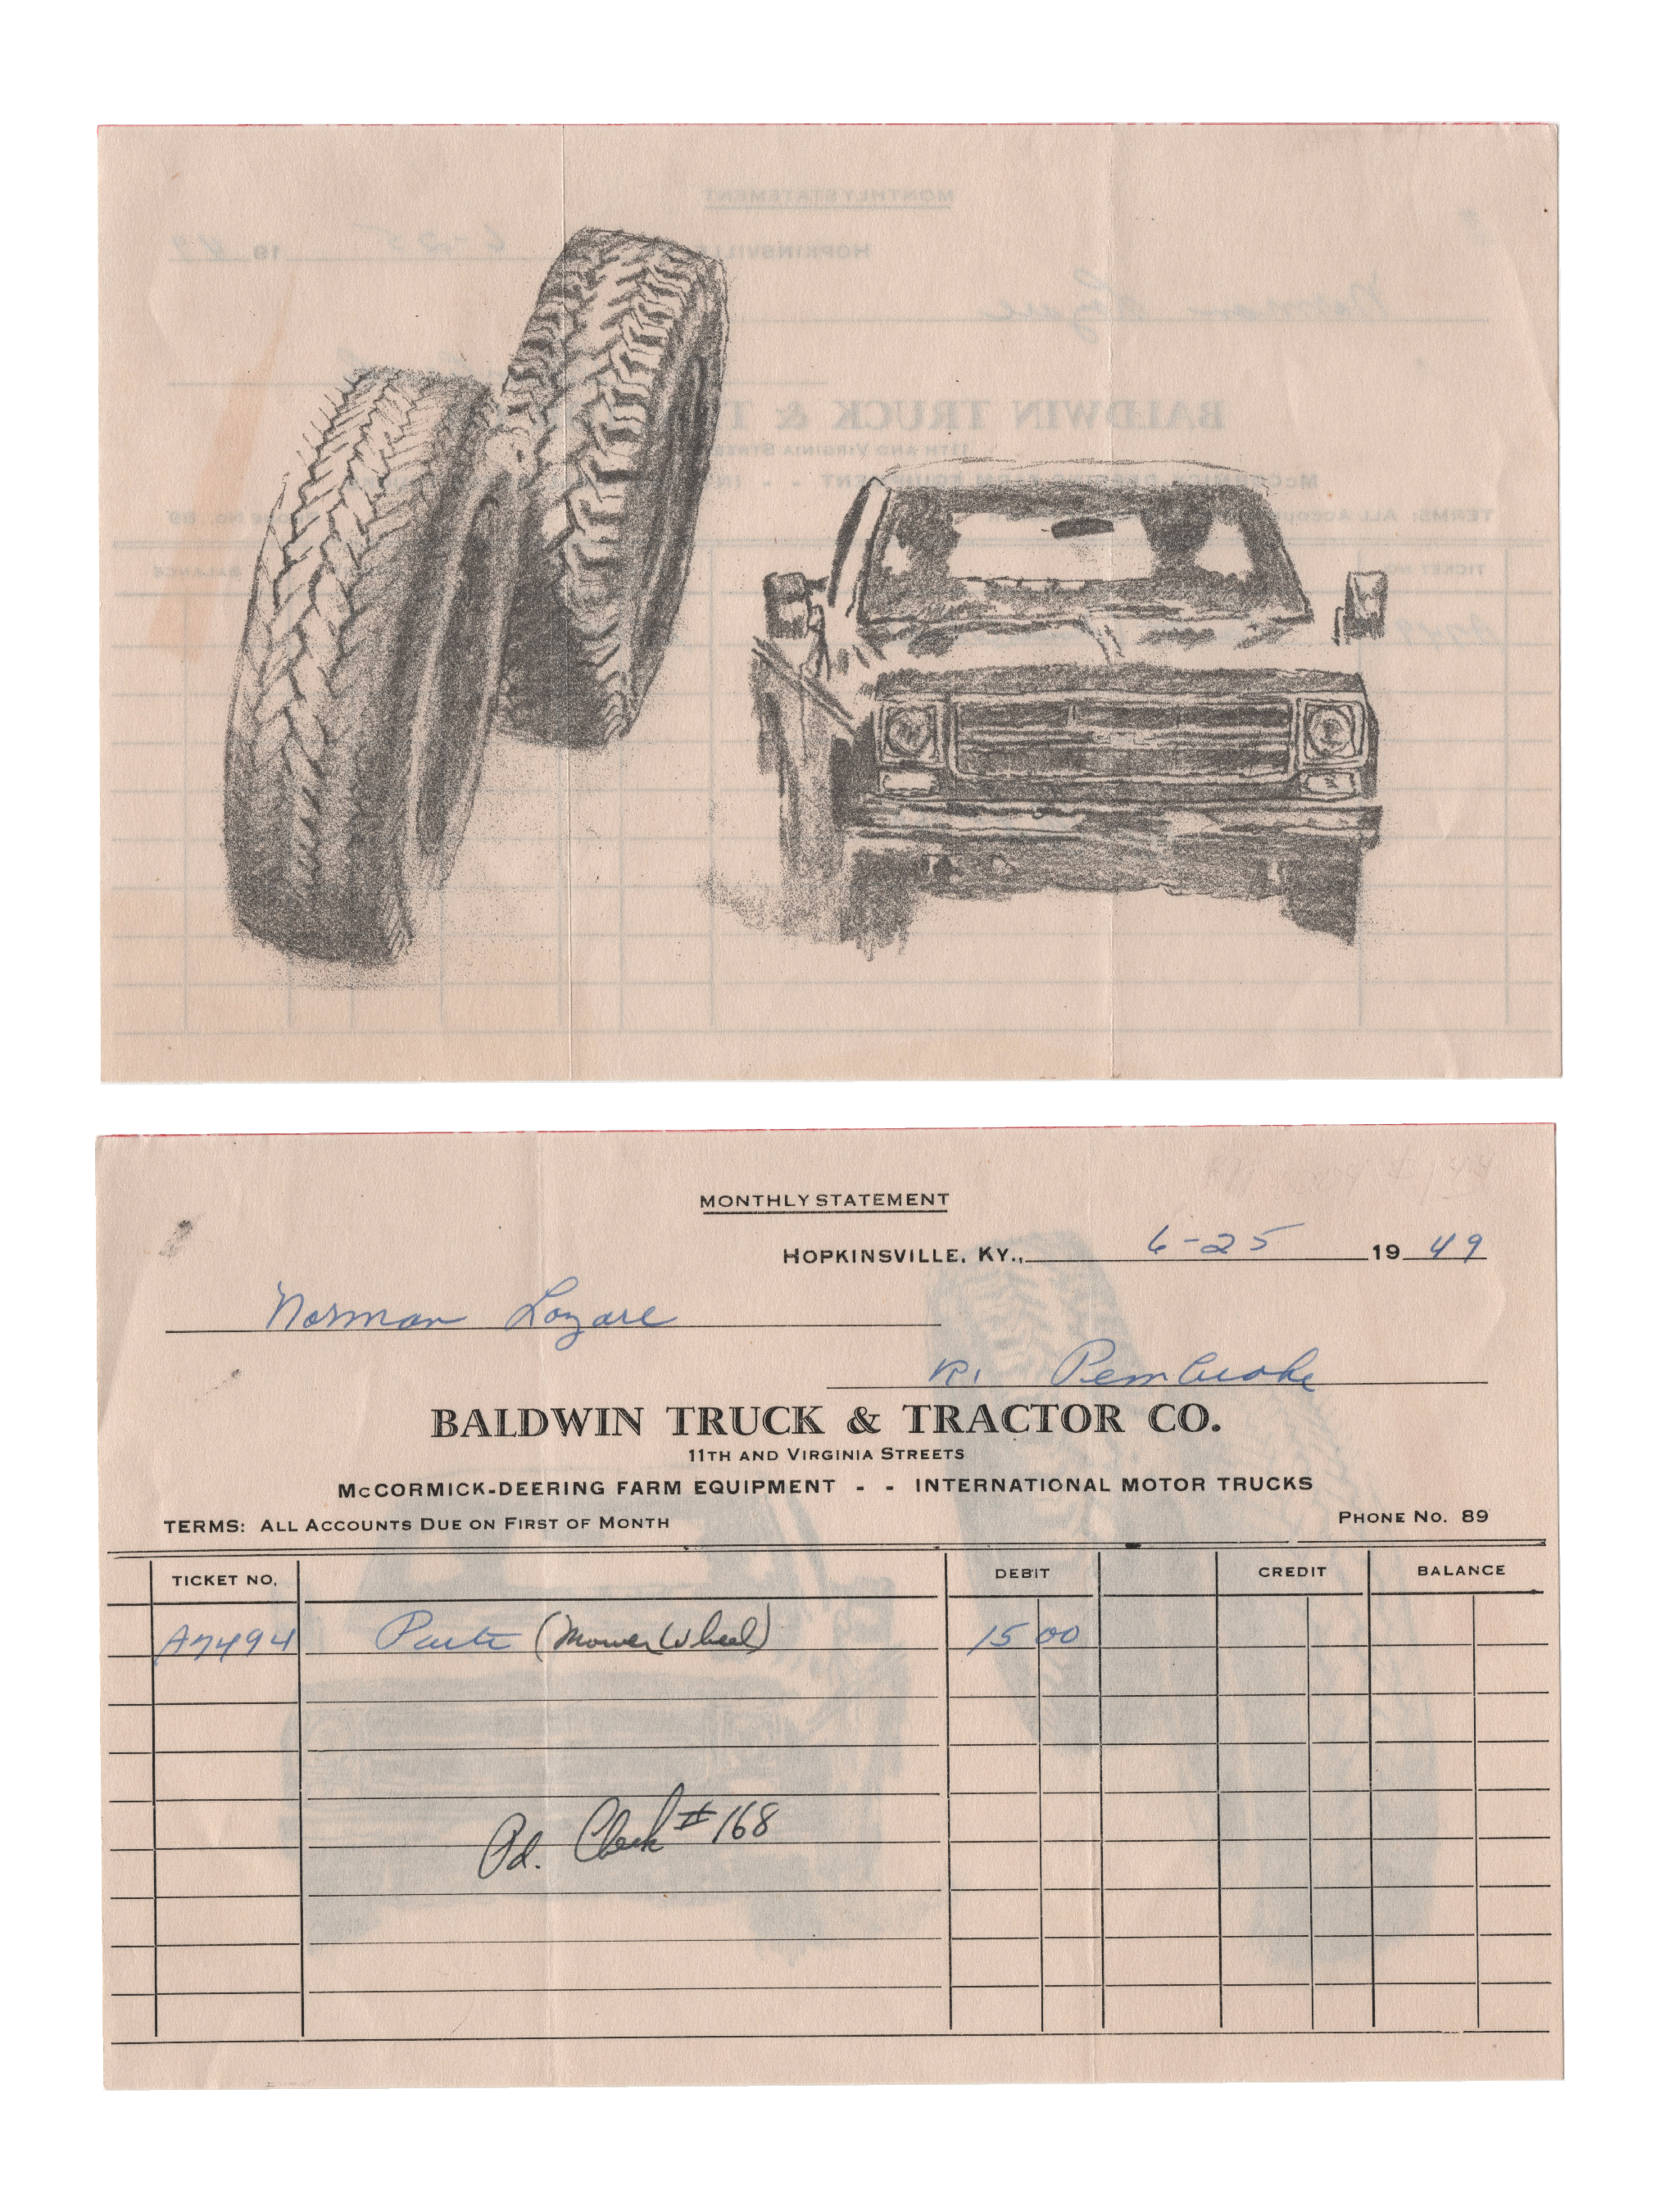 MONTHLY STATEMENT
HOPKINSVILLE, KY., 6-25 19 49
Norman
R. Pembroke
BALDWIN TRUCK & TRACTOR CO.
11TH AND VIRGINIA STREETS
McCORMICK-DEERING FARM EQUIPMENT - - INTERNATIONAL MOTOR TRUCKS
TERMS: ALL ACCOUNTS DUE ON FIRST OF MONTH PHONE NO. 89
TICKET NO. DEBIT CREDIT BALANCE
A7494 Parts (Mower Wheel) 15 00
Pd. Check #168